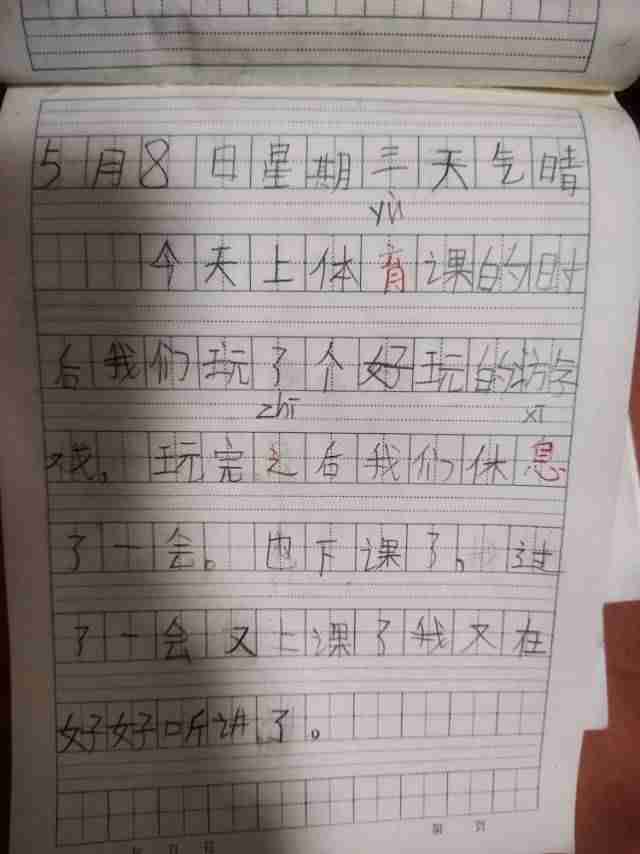 5月8日星期三天气晴
yù
今天上体育课的时
后我们玩了个好玩的游
zhī xī
戏,玩完之后我们休息
了一会。也下课了。过
了一会又上课了我又在
好好听讲了。
第 页